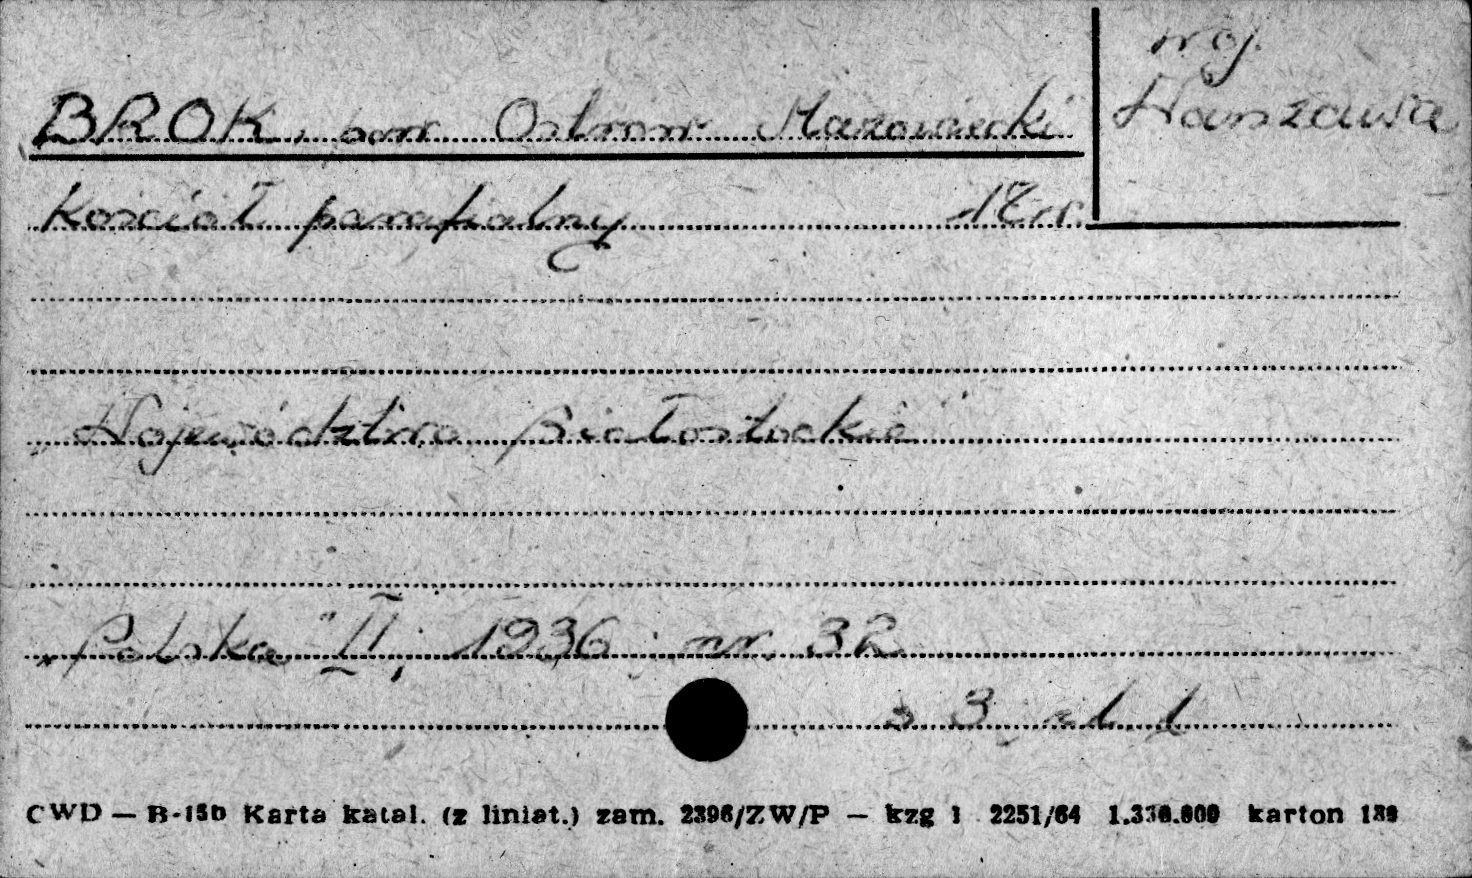 woj.
Warszawa
BROK, pow. Ostrów Mazowiecki
Kościół parafialny
"Województwo Białostockie"
"Polska" II, 1936, nr. 32
s 3 il 1
CWD — B-15b Karta katal. (z liniat.) zam. 2396/ZW/P — kzg 1 2251/64 karton